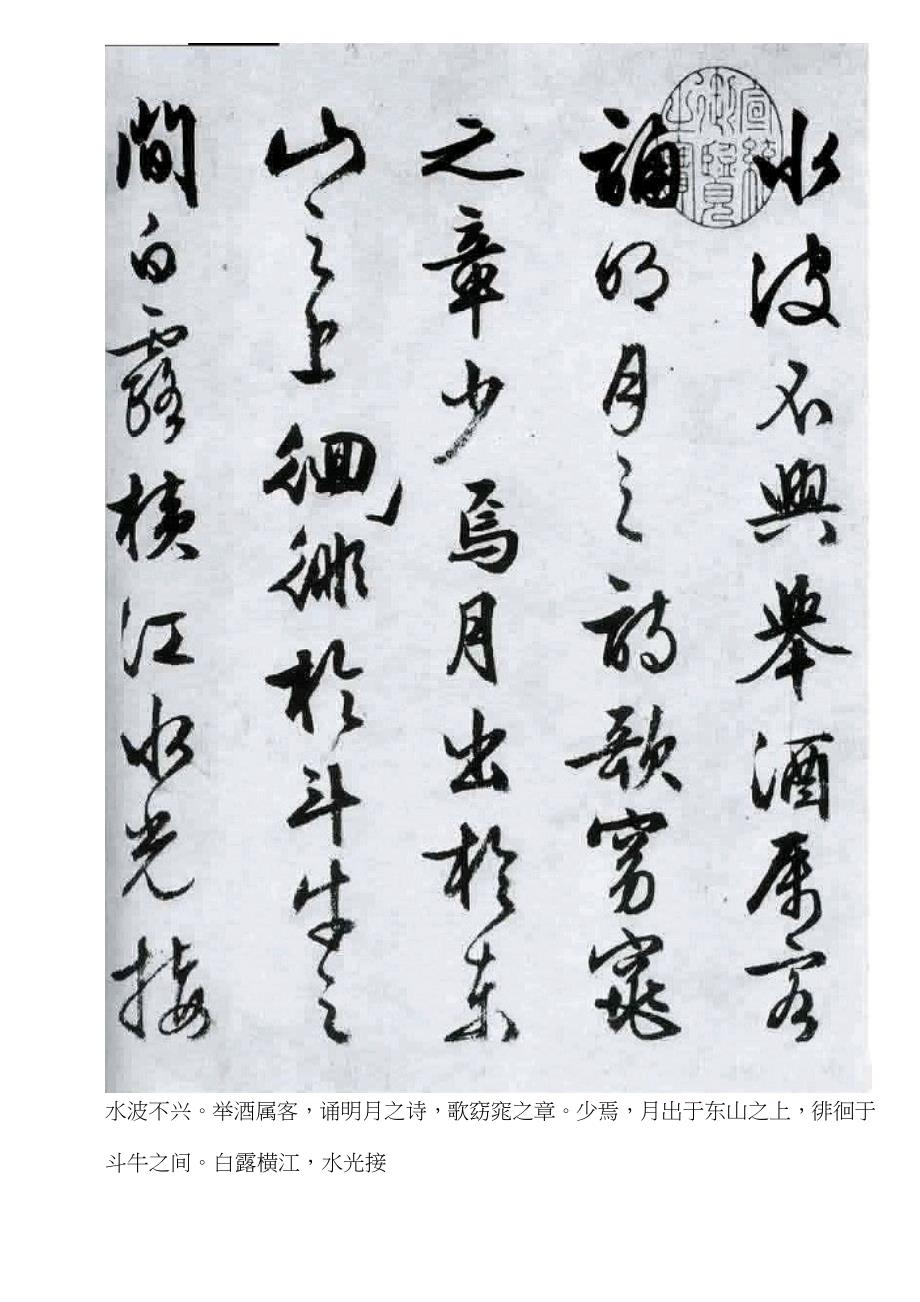 宣統御覽之寶
水波不興舉酒属客
誦明月之詩歌窈窕
之章少焉月出於東
山之上徊徘於斗牛之
間白露横江水光接
水波不兴。举酒属客，诵明月之诗，歌窈窕之章。少焉，月出于东山之上，徘徊于
斗牛之间。白露横江，水光接